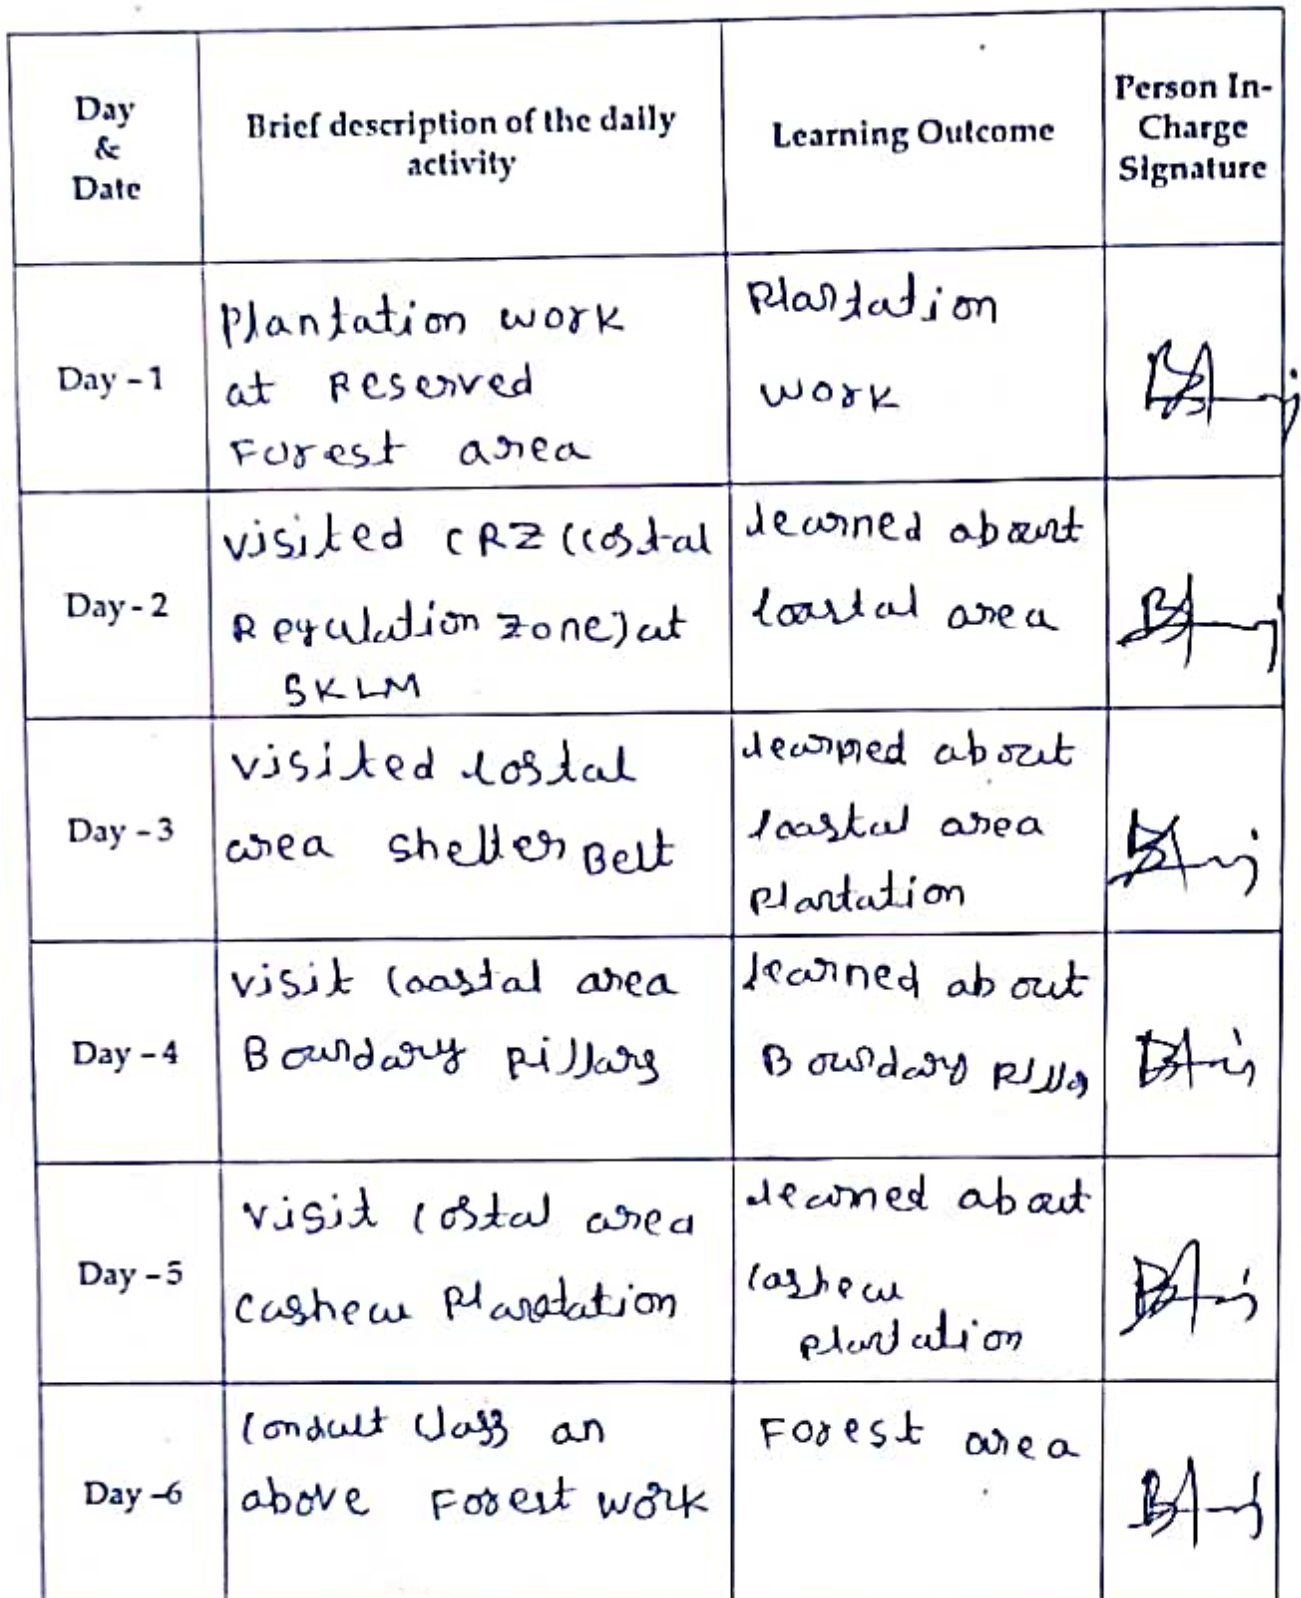 Day
&
Date
Brief description of the daily
activity
Learning Outcome
Person In-
Charge
Signature
Day - 1
Plantation work
at Reserved
Forest area
Plantation
work
Day - 2
visited CRZ (Costal
Regulation zone) at
SKLM
learned about
Coastal area
Day - 3
visited Costal
area shelter Belt
learned about
Coastal area
Plantation
Day - 4
visit Coastal area
Boundary pillars
learned about
Boundary
Day - 5
visit Costal area
Cashew Plantation
learned about
Cashew
plantation
Day -6
Conduct Class an
above Forest work
Forest area